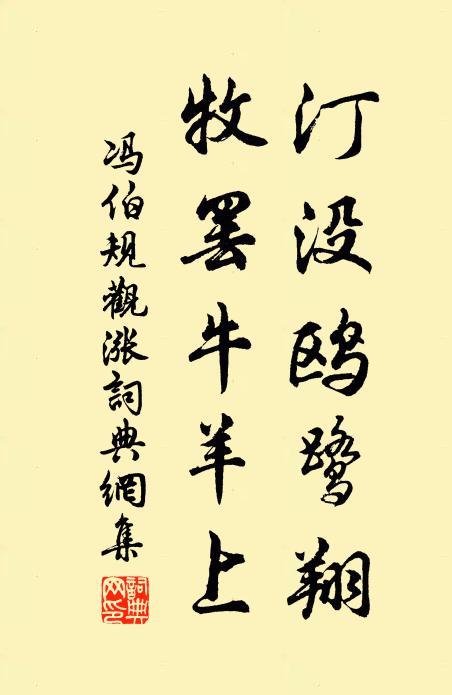 汀没鸥鹭翔
牧罢牛羊上
冯伯規觀漲詞典網集
詞典网印